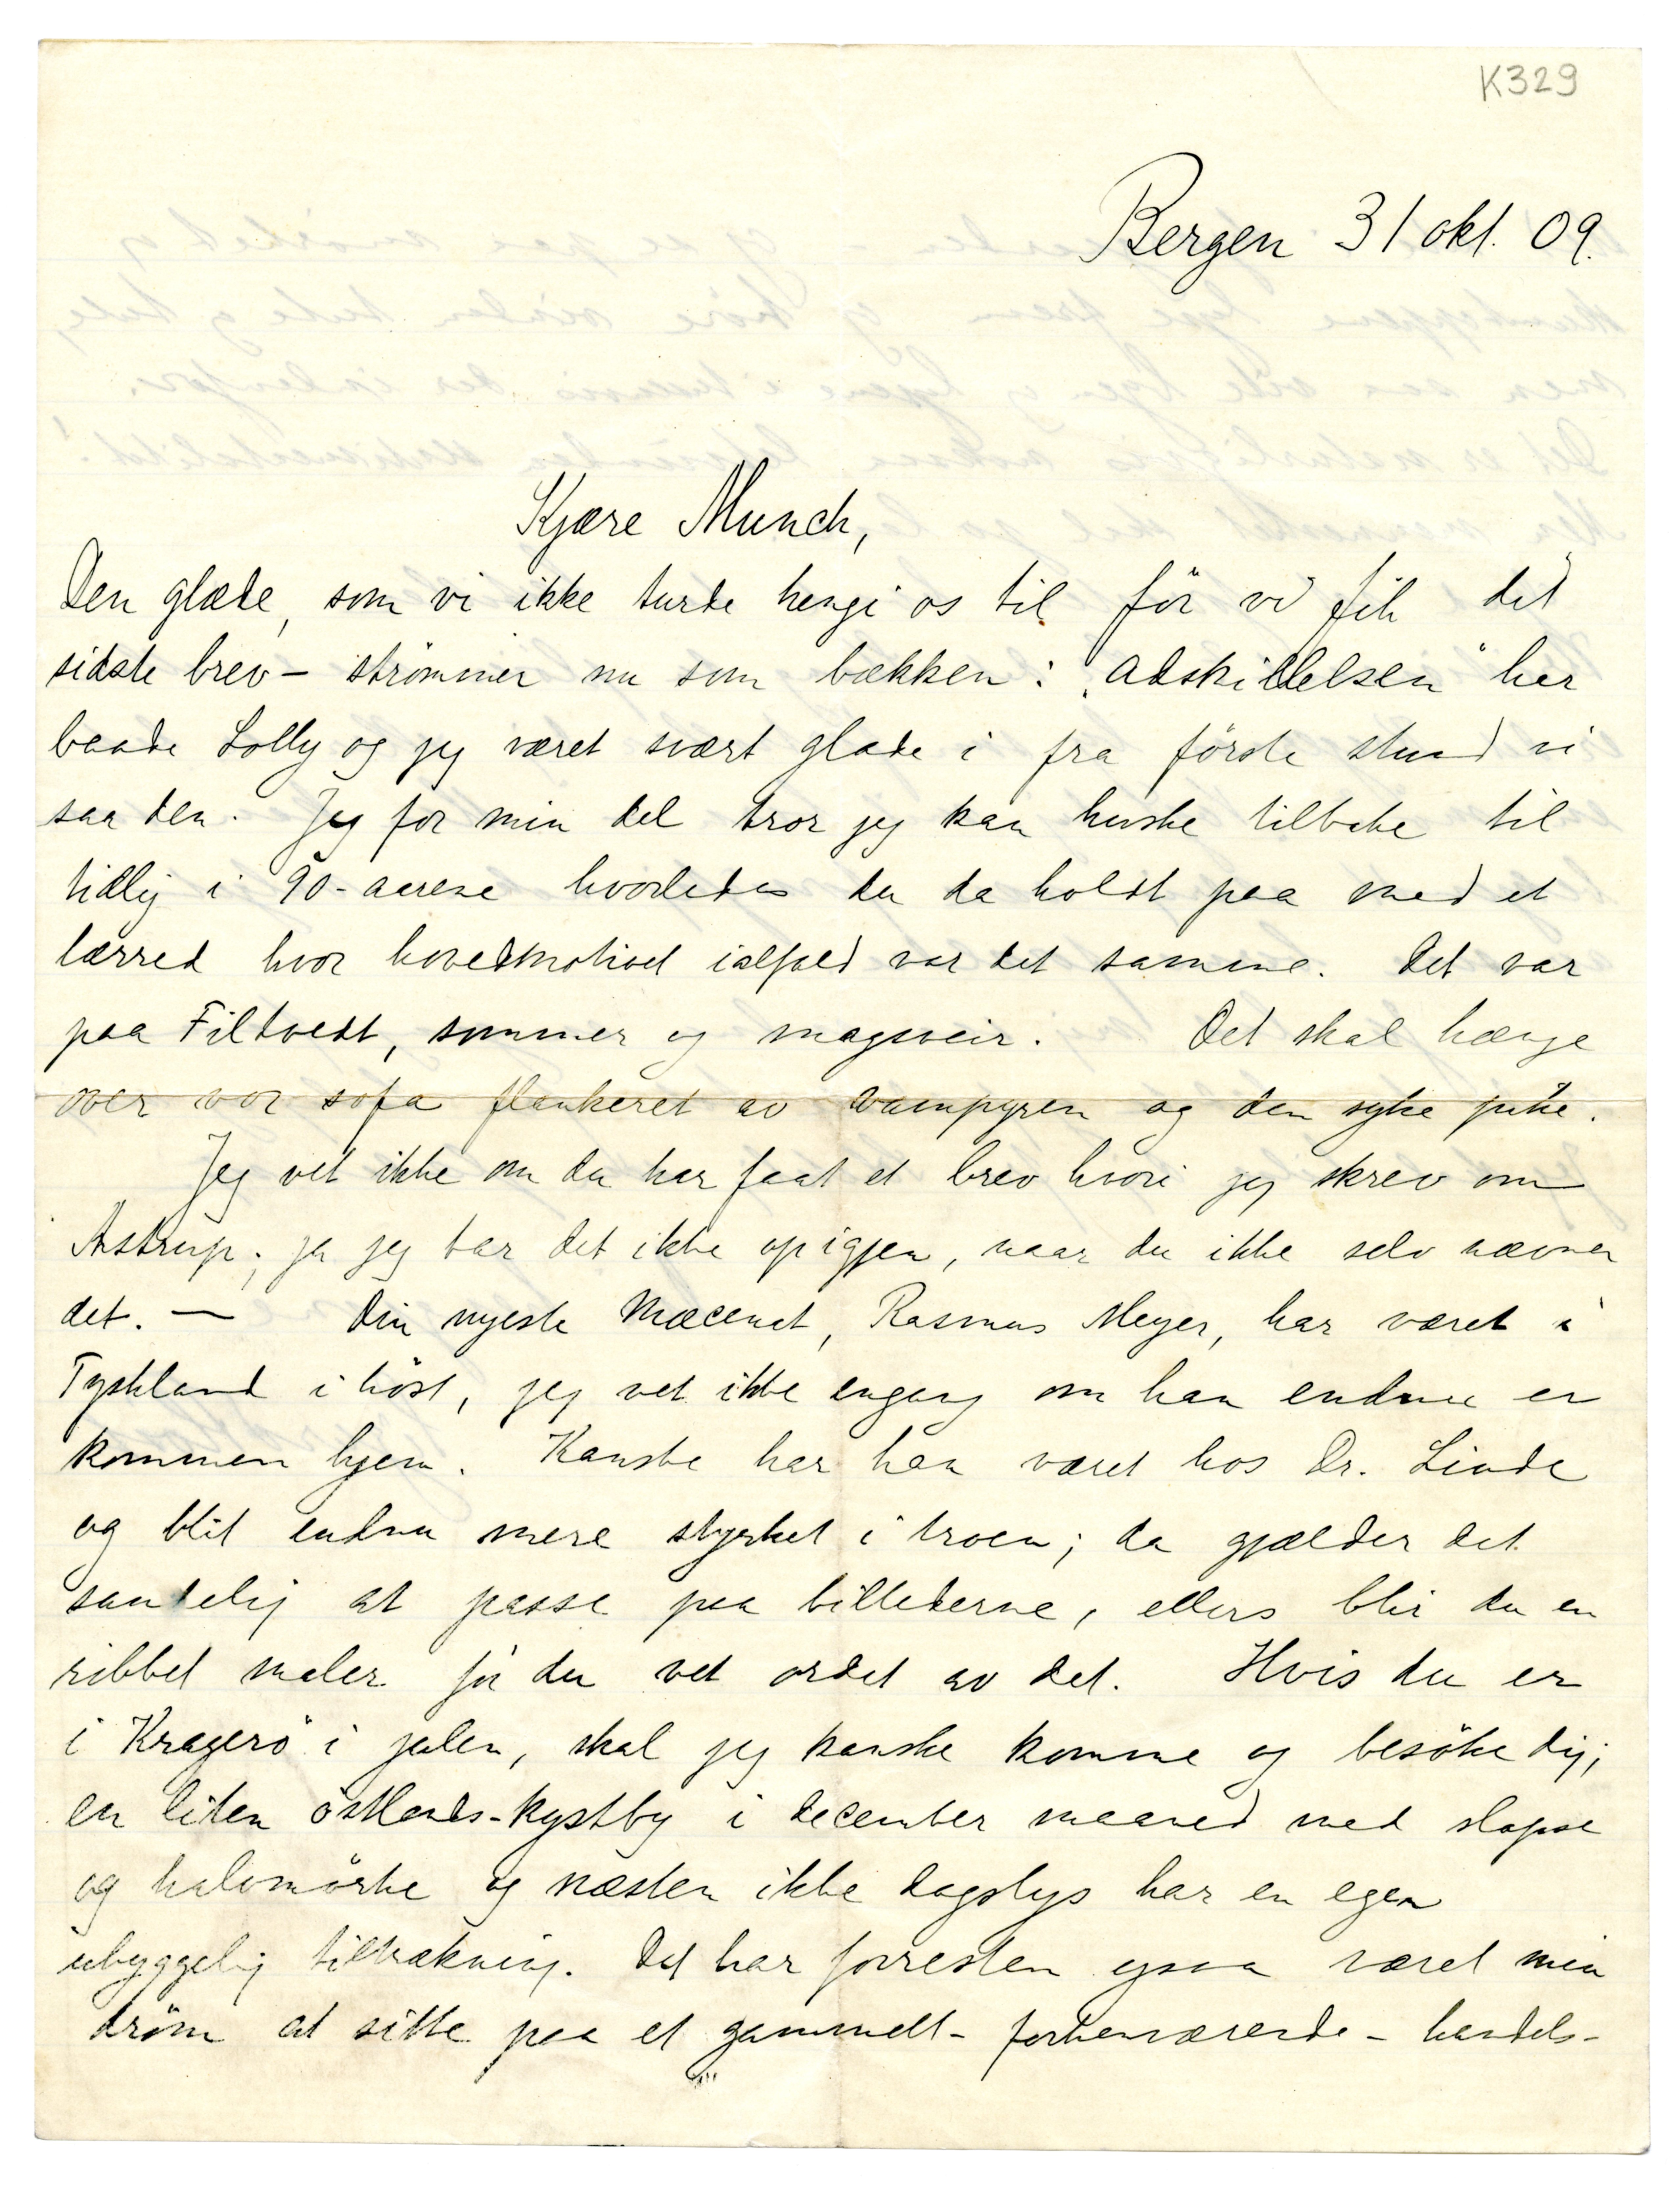 K329
Bergen 31 okt. 09.
Kjære Munch,
Den glæde, som vi ikke turde hengi os til för vi fik dit
sidste brev – strömmer nu som bækken: "Adskillelsen" har
baade Lolly og jeg været svært glade i fra förste stund vi
saa den. Jeg for min del tror jeg kan huske tilbake til
tidlig i 90-aarene hvorledes du da holdt paa med et
lærred hvor hovedmotivet ialfald var det samme. Det var
paa Filtvedt, sommer og magsveir. Det skal hænge
over vor sofa flankeret av vampyren og den syke pike.
Jeg vet ikke om du har faat et brev hvori jeg skrev om
Astrup; ja jeg tar det ikke op igjen, naar du ikke selv nævner
det. — Din nyeste Mæcenat, Rasmus Meyer, har været i
Tyskland i höst, jeg vet ikke engang om han endnu er
kommen hjem. Kanske har han været hos Dr. Linde
og blit endnu mere styrket i troen; da gjælder det
sandelig at passe paa billederne, ellers blir du en
ribbet maler för du vet ordet av det. Hvis du er
i Kragerö i julen, skal jeg kanske komme og besöke dig;
en liten östlands-kystby i december maaned med slapse
og halvmörke og næsten ikke dagslys har en egen
uhyggelig tiltrækning. Det har forresten ogsaa været min
dröm at sitte paa et gammelt – forhenværende – handels-